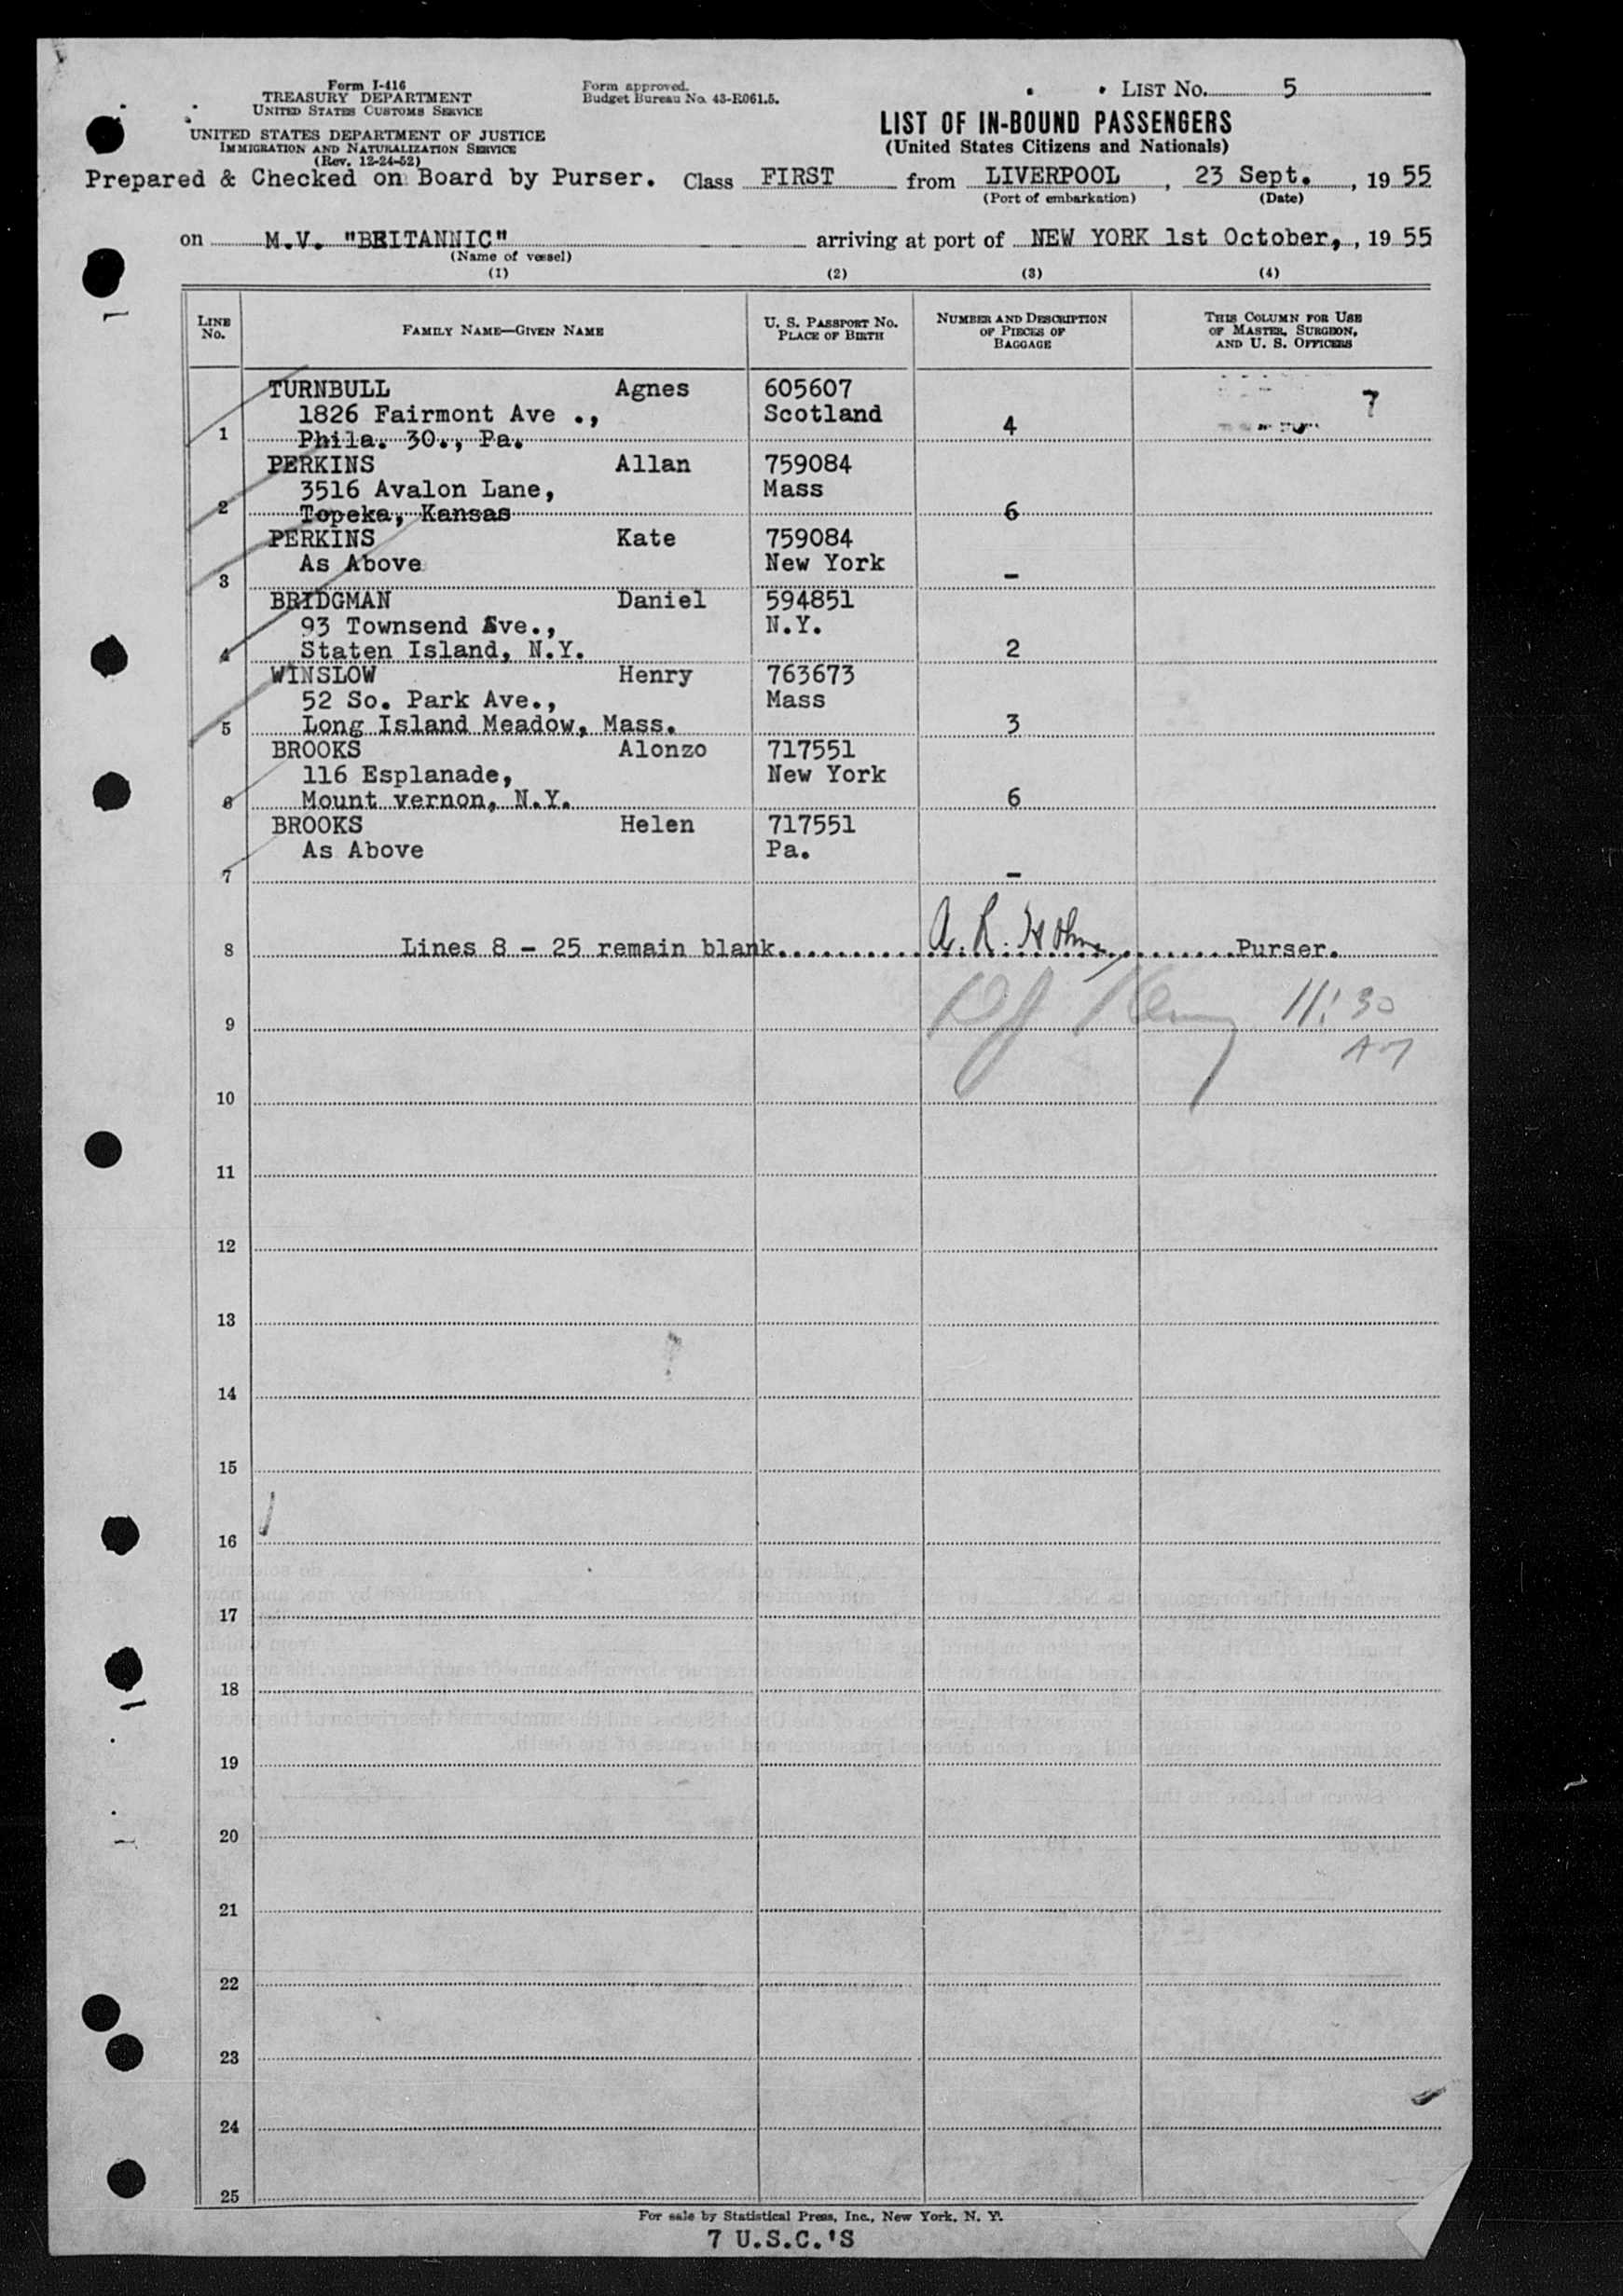 Form I-416
TREASURY DEPARTMENT
UNITED STATES CUSTOMS SERVICE
UNITED STATES DEPARTMENT OF JUSTICE
IMMIGRATION AND NATURALIZATION SERVICE
(Rev. 12-24-52)
Form approved.
Budget Bureau No. 43-R061.5.
LIST NO. 5
LIST OF IN-BOUND PASSENGERS
(United States Citizens and Nationals)
Prepared & Checked on Board by Purser. Class FIRST from LIVERPOOL, 23 Sept., 19 55
(Port of embarkation) (Date)
on M.V. "BRITANNIC" arriving at port of NEW YORK 1st October,, 19 55
(Name of vessel)
(1) (2) (3) (4)
LINE NO. FAMILY NAME—GIVEN NAME U. S. PASSPORT NO. PLACE OF BIRTH NUMBER AND DESCRIPTION OF PIECES OF BAGGAGE THIS COLUMN FOR USE OF MASTER, SURGEON, AND U. S. OFFICERS
TURNBULL Agnes 605607 7
1826 Fairmont Ave ., Scotland
1 Phila. 30., Pa. 4
PERKINS Allan 759084
3516 Avalon Lane, Mass
2 Topeka, Kansas 6
PERKINS Kate 759084
As Above New York
3 -
BRIDGMAN Daniel 594851
93 Townsend Ave., N.Y.
4 Staten Island, N.Y. 2
WINSLOW Henry 763673
52 So. Park Ave., Mass
5 Long Island Meadow, Mass. 3
BROOKS Alonzo 717551
116 Esplanade, New York
6 Mount vernon, N.Y. 6
BROOKS Helen 717551
As Above Pa.
7 -
8 Lines 8 - 25 remain blank A. R. Purser.
9 11:30
AM
10
11
12
13
14
15
16
17
18
19
20
21
22
23
24
25
For sale by Statistical Press, Inc., New York, N. Y.
7 U.S.C.'S